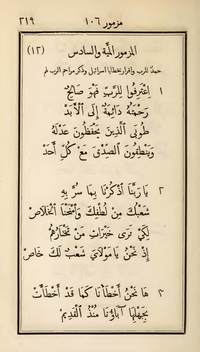 مزمور ١٠٦
٢١٩
المزمور المئة والسادس (١٢)
حمد الرب واقرار بخطايا اسرائيل وذكر مراحم الرب لهم
١ اِعْتَرِفُوا لِلرَّبِّ فَهْوَ صَالِحٌ
رَحْمَتُهُ دَائِمَةٌ إِلَى الْأَبَدْ
طُوبَى الَّذِينَ يَحْفَظُونَ عَدْلَهُ
وَيَنْطِقُونَ الصِّدْقَ مَعْ كُلِّ أَحَدْ
٢ يَا رَبَّنَا اذْكُرْنَا بِمَا سُرَّ بِهِ
شَعْبُكَ مِنْ لُطْفِكَ وَامْنَحْنَا الْخَلَاصْ
لِكَيْ نَرَى خَيْرَاتِ مَنْ تَخْتَارُهُمْ
إِذْ نَحْنُ يَا مَوْلَايَ شَعْبٌ لَكَ خَاصْ
٣ هَا نَحْنُ أَخْطَأْنَا كَمَا قَدْ أَخْطَأَتْ
بِجَهْلِهَا آبَاؤُنَا مُنْذُ الْقَدِيمْ